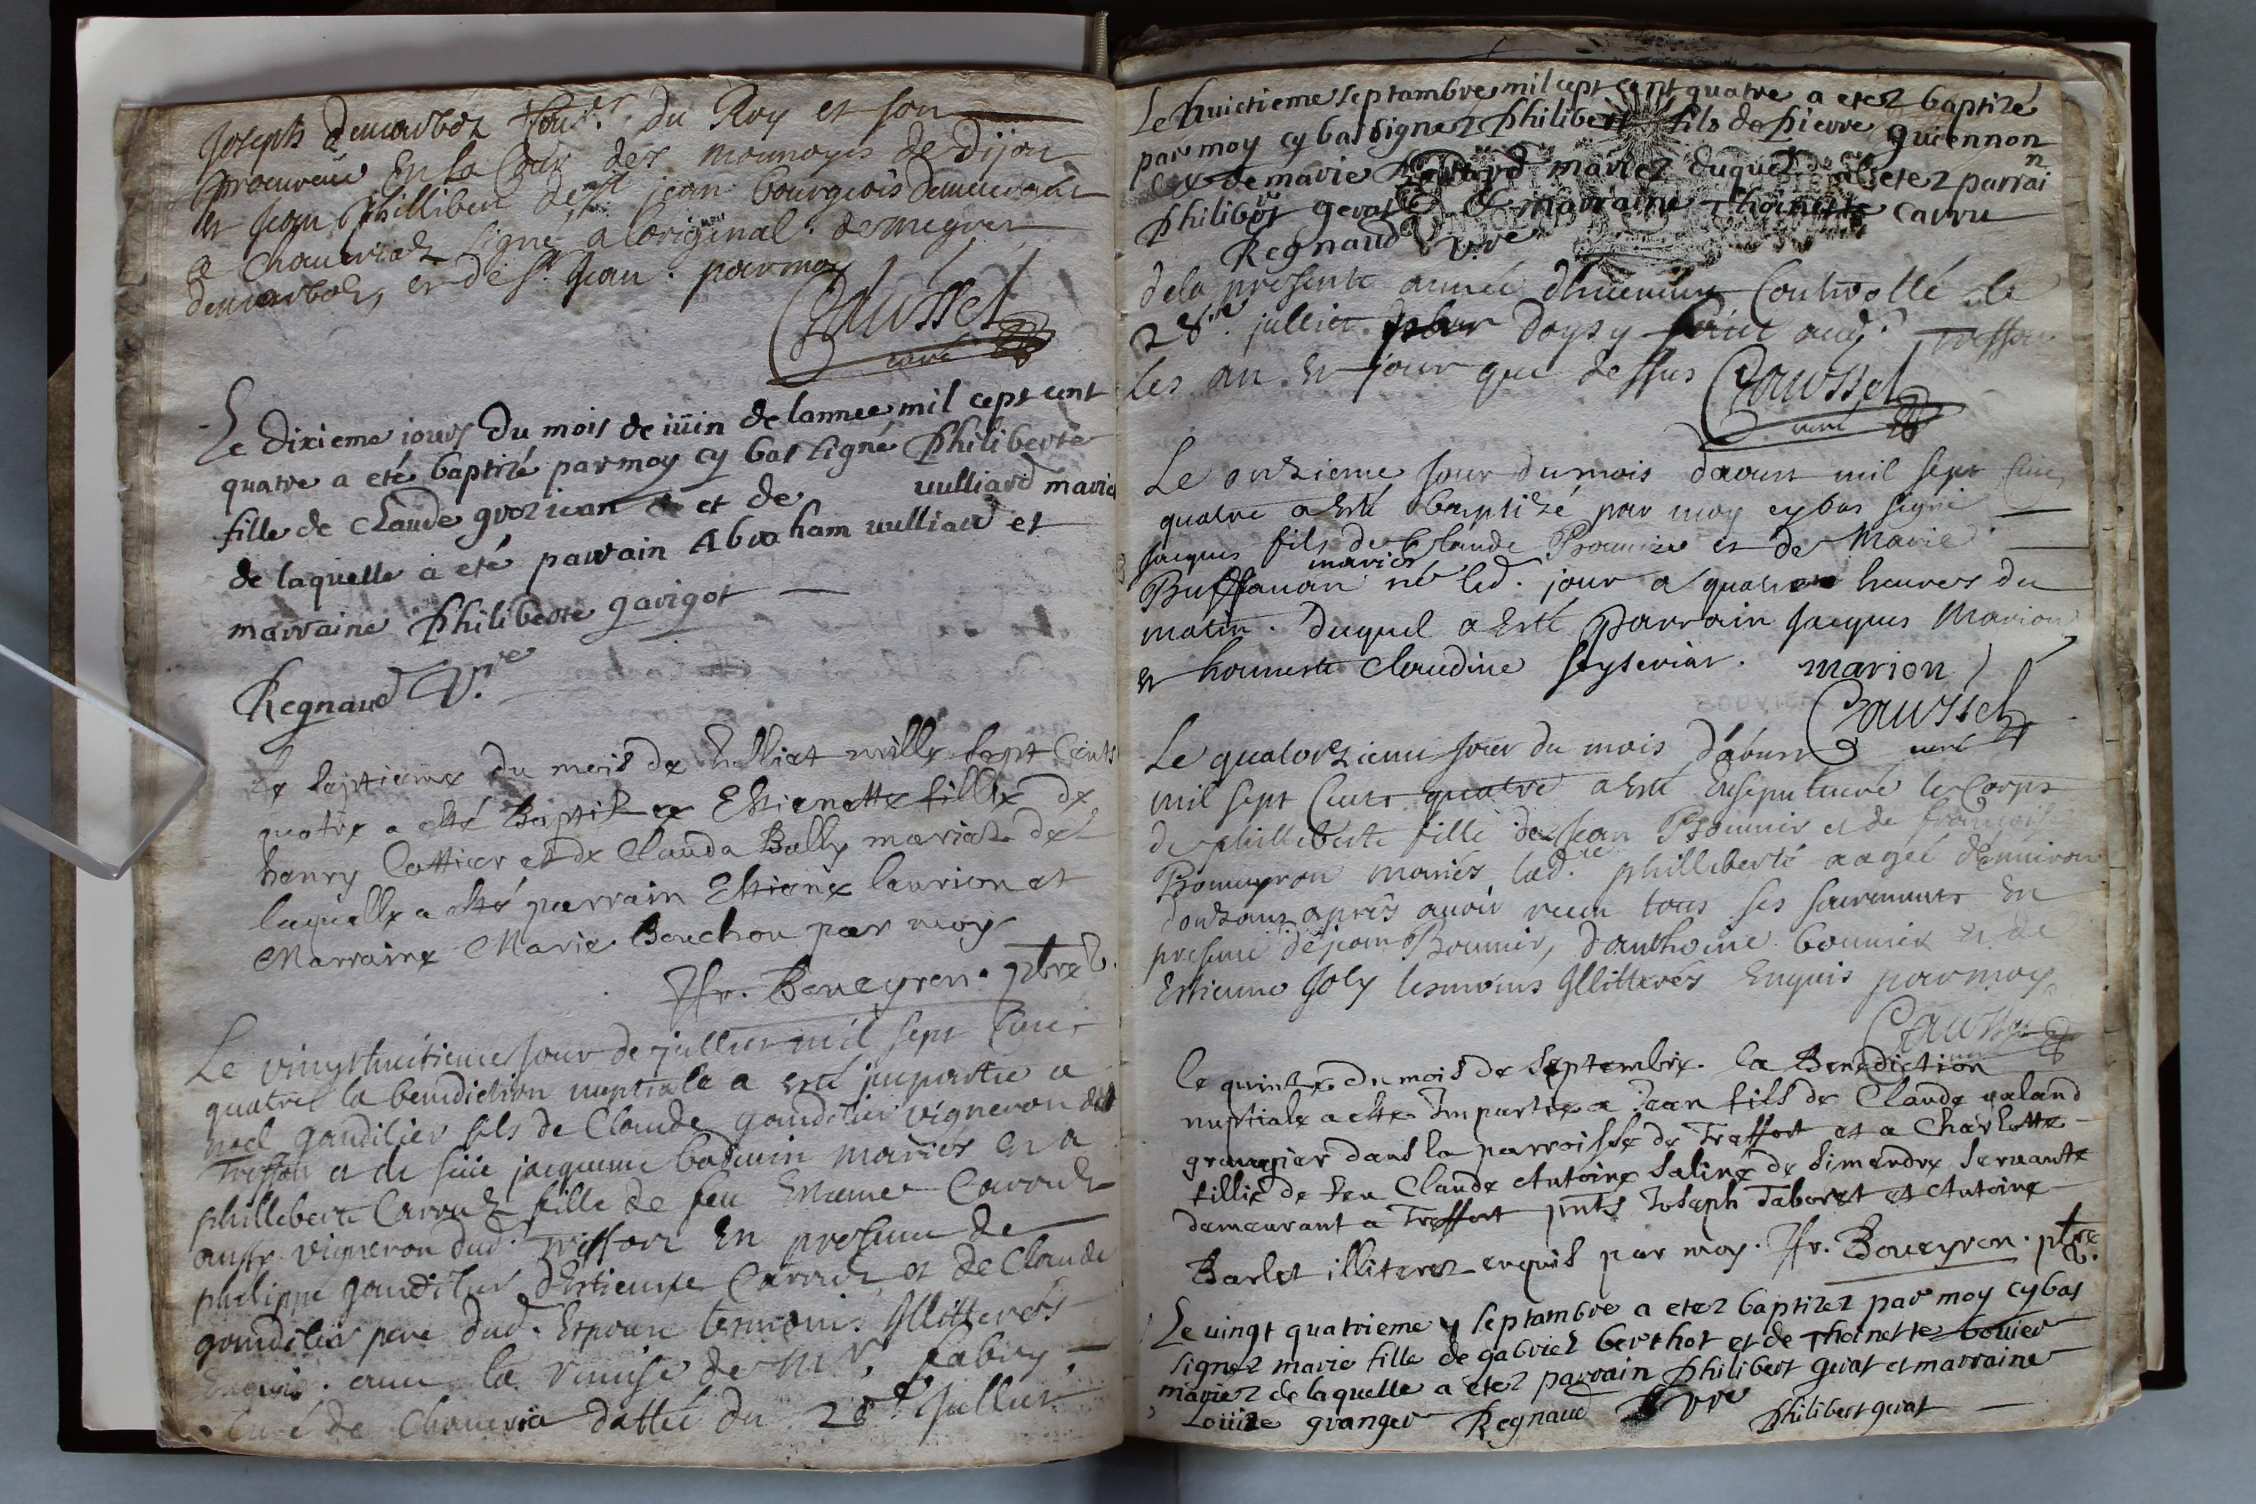 Joseph demarboz du Roy et son
procureur En la Cour des monnoyes de Dijon
et Jean Philliber de st jean bourgeois demeurant
a Chaulriat signé a loriginal
demarboz, et de st Jean. par moy
Caussel
curé
Le dixieme iours du mois de iüin de lannee mil cept cent
quatre a eté baptizé par moy cy bas signé Philiberte
fille de Claude grozican et de uulliard mariez
de laquelle a eté parrain Abraham uulliard et
marraine Philiberte gavigot
Regnaud V.re
Le septieme du mois de Julliat mille sept Cents
quatre a esté Baptizee Estienette fillie de
henry Cottier et de Clauda Bolly mariez de
laquelle a esté parrain Estiene laurion et
Marraine Marie Bouchon par moy
Fr. Boveyron. ptre
Le vingt huitieme Jour de jullier mil sept Cent
quatre la benediction nuptiale a esté jmpartie a
noel gaudilier fils de Claude gaudilier vigneron de
Treffort et de jacquemne boduin mariés et a
philleberte Carroud fille de feu Estienne Carroud
aussy vigneron dud. Treffort En presence de
philippe gaudilier d'Estienne Carroud et de Claude
gaudilier pere dud. Espoux temoins Jllitterés
Enquis. avec la remise de Mr. fabry
Curé de Chaveria dattée du 28e Jullier
Le huictieme septambre mil cept cent quatre a etez baptizé
par moy cy bas signez Philibert fils de pierre guiennon
de marie mariez duquel a etez parrain
Philibert gerat & marraine Thoinette carru
Regnaud Vre
dela presente année Controllé le
28e. jullier
les an. et jour que dessus Caussel
curé
Le onzieme Jour du mois daoust mil sept Cent
quatre a esté baptizé par moy cy bas signé
Jacques fils de Claude et de Marie
mariés
né led. jour a quatre heures du
matin. duquel a esté parrain Jacques Marion
et honneste Claudine seyseriat. marion
Caussel
curé
Le quatorzieme Jour du mois d'aoust
mil sept Cent quatre a esté Ensepulturé le Corps
de philleberte fille de Jean et de françoise
mariés lad.te philleberté aagée d'environ
douzans apres avoir receu tous ses sacrements En
presence de jean d'anthoine et de
Estienne Joly tesmoins Jllitterés Enquis par moy
Caussel
le quinze du mois de septembre. la Benediction
nuptiale a esté Impartie a Jean fils de Claude galand
grangier dans la parroisse de Treffort et a Charlotte
fillie de feu Claude Antoine Saline de Simandre servante
demeurant a Treffort pnts Joseph Taboret et Antoine
Barlet illiterez enquis par moy. Fr. Boveyron. ptre
Le uingt quatrieme septambre a etez baptizez par moy cy bas
signez marie fille de gabriel berthot et de Thoinette bouier
mariez de laquelle a etez parrain Philibert gerat et marraine
Louize granger Regnaud Vre Philibert gerat